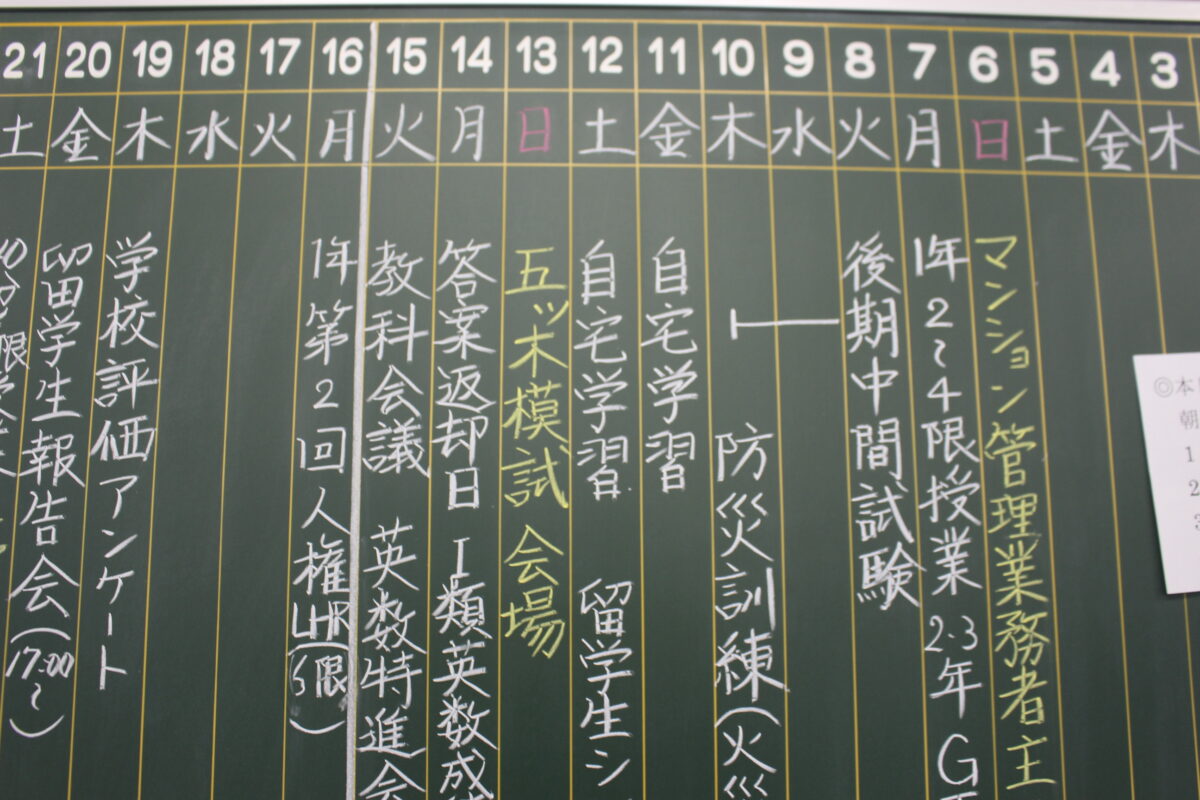 21 20 19 18 17 16 15 14 13 12 11 10 9 8 7 6 5 4 3
土 金 木 水 火 月 火 月 日 土 金 木 水 火 月 日 土 金 木
マンション管理業務者主
1年2~4限授業 2·3年 G
後期中間試験
防災訓練(火災
自宅学習
自宅学習 留学生シ
五ッ木模試会場
答案返却日 I類英数成
教科会議 英数特進会
1年第2回人権LHR
学校評価アンケート
留学生報告会(17:00~)
◎本
朝
1
2
3